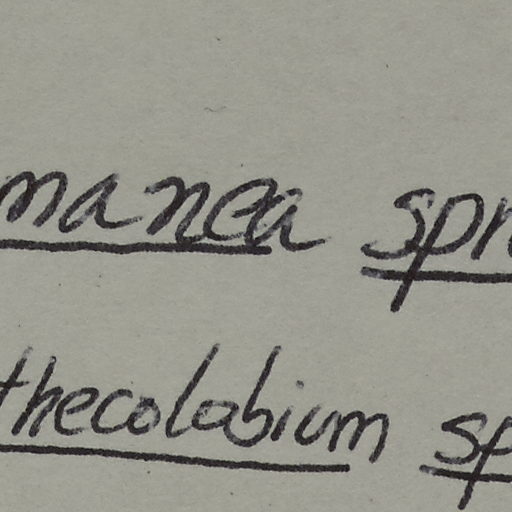 manea spr
thecolabium sp